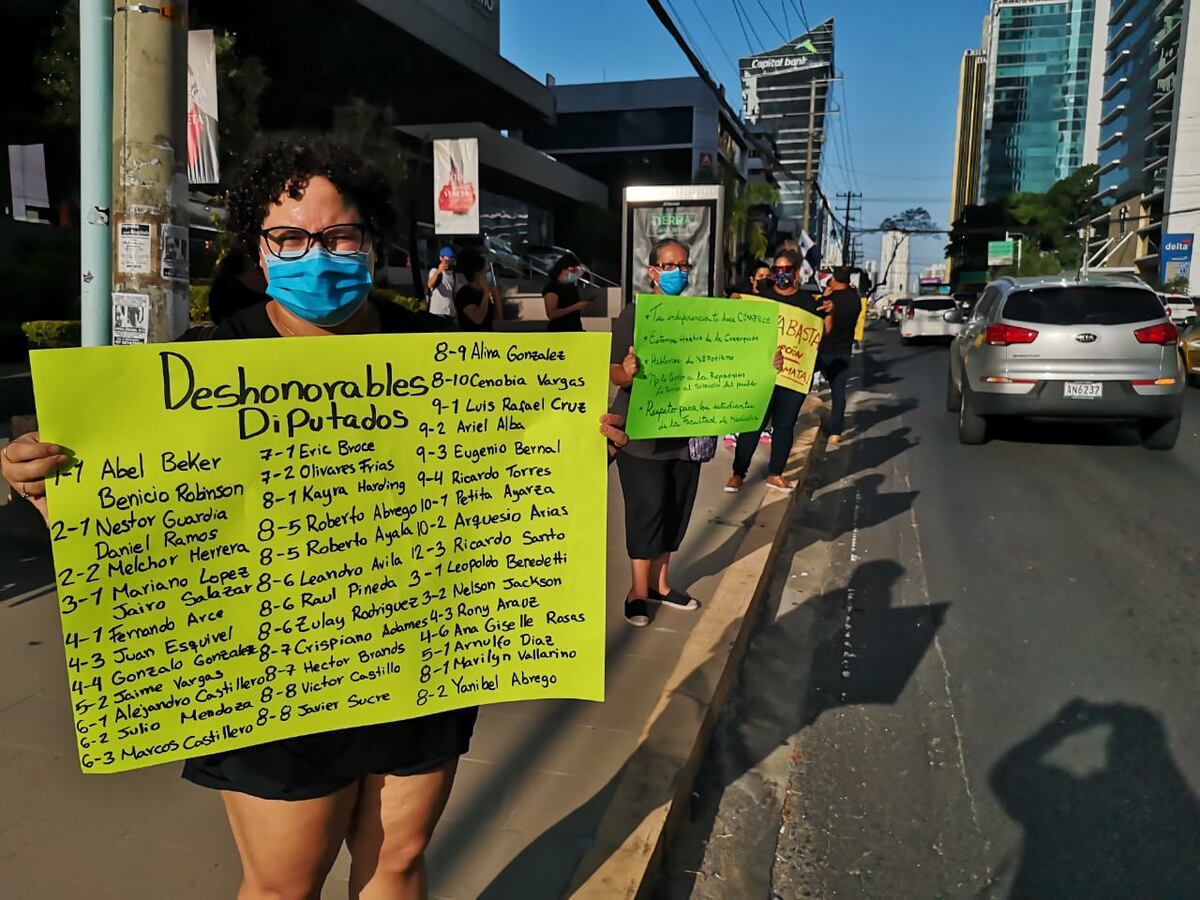 Deshonorables
DiPutados
1-1 Abel Beker
Benicio Robinson
2-1 Nestor Guardia
Daniel Ramos
2-2 Melchor Herrera
3-1 Mariano Lopez
Jairo Salazar
4-1 Fernando Arce
4-3 Juan Esquivel
4-4 Gonzalo Gonzalez
5-2 Jaime Vargas
6-1 Alejandro Castillero
6-2 Julio Mendoza
6-3 Marcos Castillero
7-1 Eric Broce
7-2 Olivares Frias
8-1 Kayra Harding
8-5 Roberto Abrego
8-5 Roberto Ayala
8-6 Leandro Avila
8-6 Raul Pineda
8-6 Zulay Rodriguez
8-7 Crispiano Adames
8-7 Hector Brands
8-8 Victor Castillo
8-8 Javier Sucre
8-9 Alina Gonzalez
8-10 Cenobia Vargas
9-1 Luis Rafael Cruz
9-2 Ariel Alba
9-3 Eugenio Bernal
9-4 Ricardo Torres
10-1 Petita Ayarza
10-2 Arquesio Arias
12-3 Ricardo Santo
3-1 Leopoldo Benedetti
3-2 Nelson Jackson
4-3 Rony Arauz
4-6 Ana Giselle Rosas
5-1 Arnulfo Diaz
8-1 Marilyn Vallarino
8-2 Yanibel Abrego
Tu indiferencia te hace CÓMPLICE
• Estamos Hartos de la Corrupción
• Hablemos de NEPotismo
• No le temo a la Represión
Le temo al silencio del pueblo
• Respeto para los estudiantes
de la Facultad de Medicina
BASTA
MATA!
Capital bank
KIA
AN6237
delta